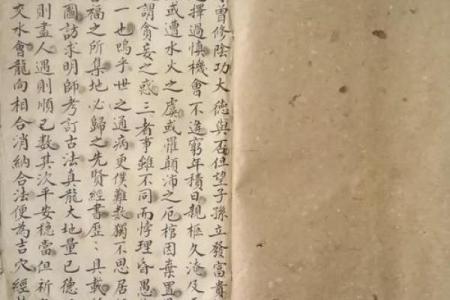 曾修陰功大德與否但望子孫立發富貴
擇過慎機會不逢窮年積日親柩久淹及
或遭水火之虞或罹顛沛之厄棺因棄置
謂貪妄之惑三者事雖不同而悖理昏愚
一也嗚乎世之通病更僕難數獨不思居
福之所集地必歸之先賢經書歷歷具載
圖訪求明師考訂古法真龍大地量已德
則盡人遇則順已數其次平安穩當但祈
交水會龍向相合消納合法便為吉穴經